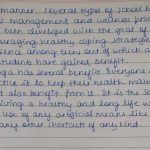 manner. Several types of school b
s management and wellness prog
been developed with the goal of
ouraging healthy coping strategie
ience among teens out of which a
students have gain benefit.
oga has several benefits. Everyone
ctice it to keep their health main
t also benefit from it. It is the se
iving a healthy and long life w
use of any artificial means like
any other shortcuts of any kind.